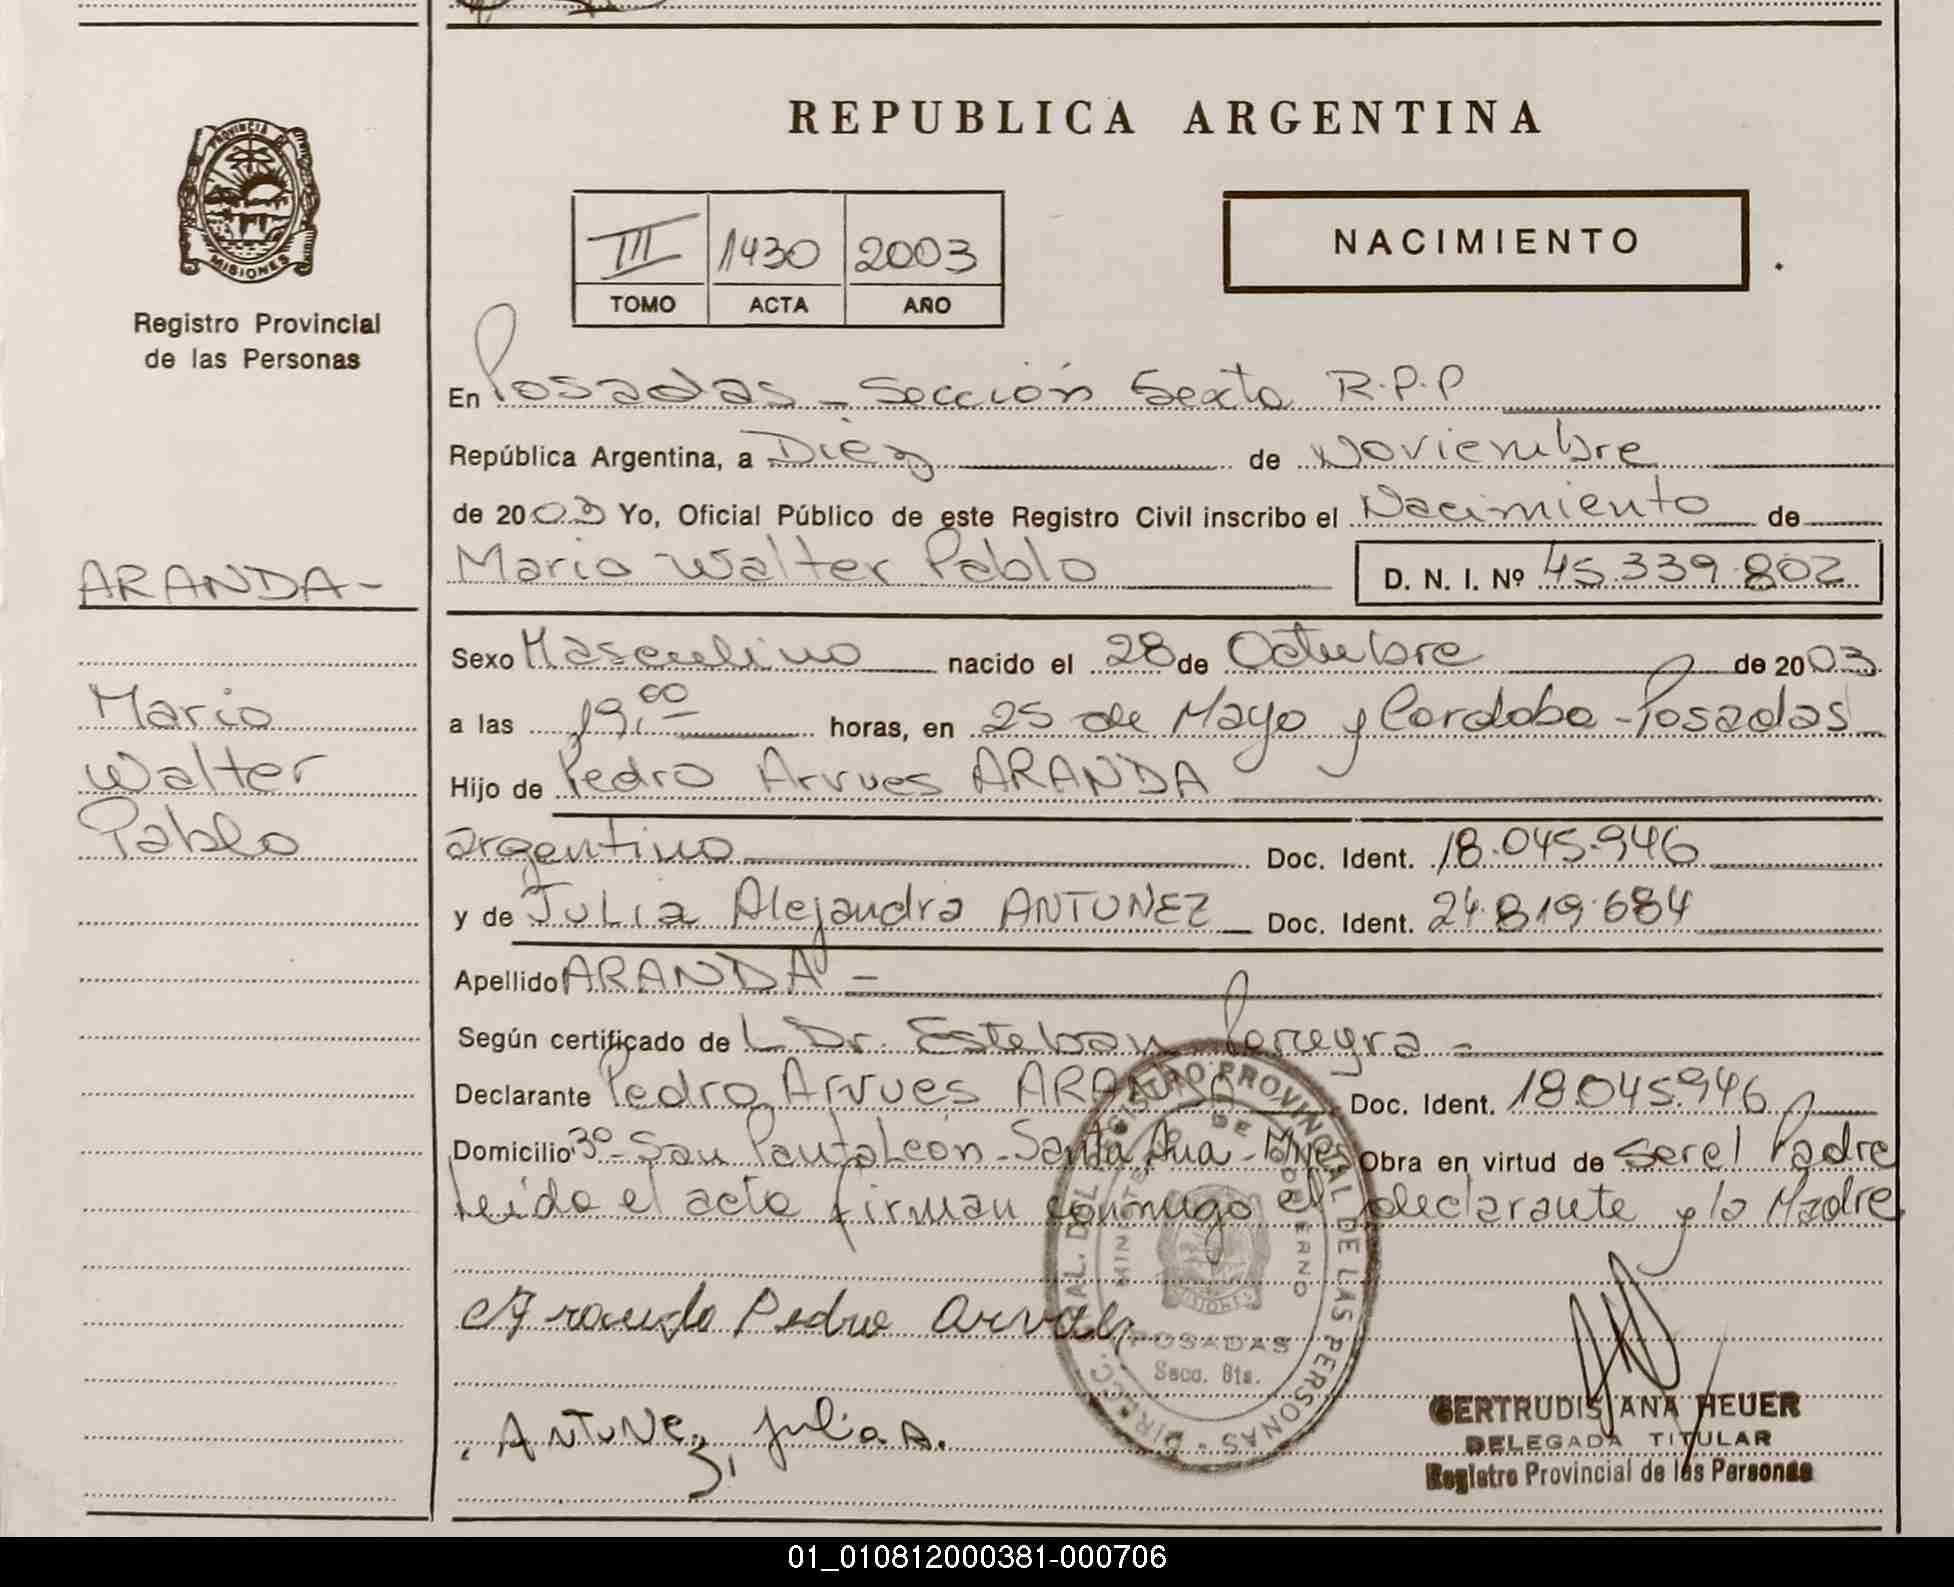 REPUBLICA ARGENTINA
PROVINCIA DE
MISIONES
Registro Provincial
de las Personas
III 1430 2003
TOMO ACTA AÑO
NACIMIENTO
En Posadas - Sección Sexta R.P.P
República Argentina, a Diéz de Noviembre
de 2003 Yo, Oficial Público de este Registro Civil inscribo el Nacimiento de
Mario Walter Pablo D. N. I. Nº 45.339.802
ARANDA-
Mario
Walter
Pablo
Sexo Masculino nacido el 28 de Octubre de 2003
a las 19,00 horas, en 25 de Mayo y Cordoba - Posadas
Hijo de Pedro Arvues ARANDA
argentino Doc. Ident. 18.045.946
y de Julia Alejandra ANTUNEZ Doc. Ident. 24.819.684
Apellido ARANDA -
Según certificado de L Dr. Esteban Pereyra -
Declarante Pedro Arvues ARANDA Doc. Ident. 18.045.946
Domicilio 3º- San Pantaleón - Santa Ana - Mnes Obra en virtud de ser el Padre
leida el acta firman conmigo el declarante y la Madre
Aranda Pedro Arvues
ANTUNEZ, Julia A.
DIRECC. GRAL. DEL REGISTRO PROVINCIAL DE LAS PERSONAS
MINISTERIO DE GOBIERNO
MISIONES
POSADAS
Secc. 6ta.
GERTRUDIS ANA HEUER
DELEGADA TITULAR
Registro Provincial de las Personas
01_010812000381-000706